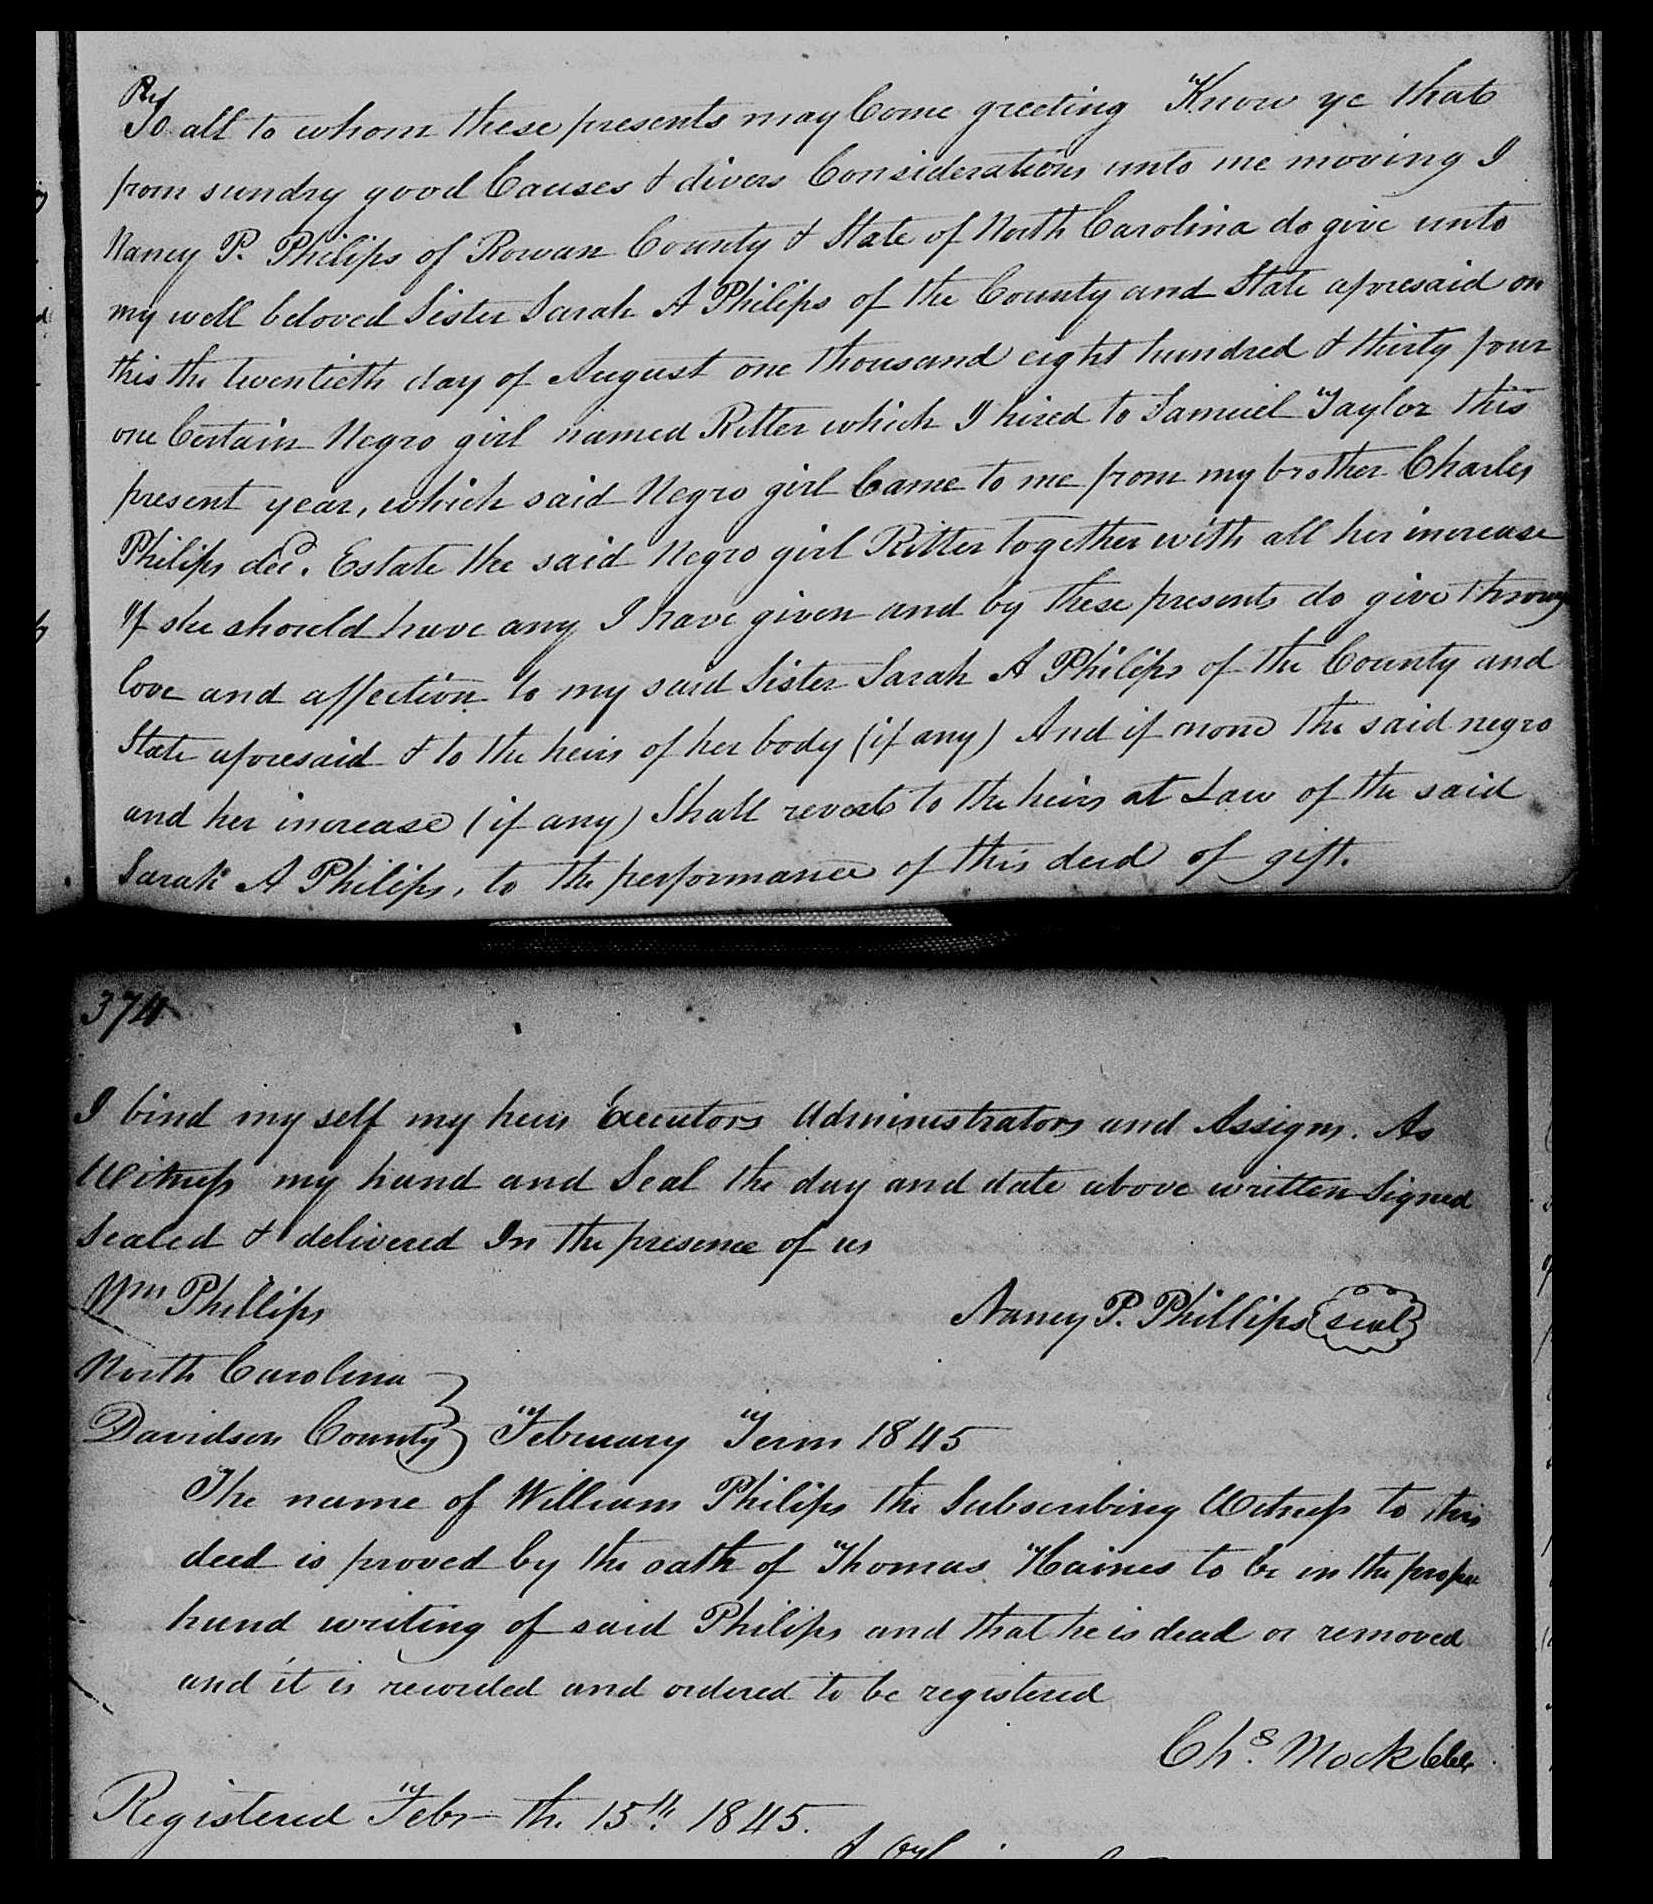 To all to whom these presents may Come greeting Know ye that
from sundry good Causes & divers Considerations unto me moving I
Nancy P. Philips of Rowan County & State of North Carolina do give unto
my well beloved Sister Sarah A Philips of the County and State aforesaid on
this the twentieth day of August one thousand eight hundred & thirty four
one Certain Negro girl named Ritter which I hired to Samuel Taylor this
present year, which said Negro girl Came to me from my brother Charles
Philips decd. Estate the said Negro girl Ritter together with all her increase
If she should have any I have given and by these presents do give through
love and affection to my said Sister Sarah A Philips of the County and
State aforesaid & to the heirs of her body (if any) And if none the said negro
and her increase (if any) Shall revert to the heirs at Law of the said
Sarah A Philips, to the performance of this deed of gift.
374
I bind my self my heirs Executors Administrators and Assigns. As
Witness my hand and Seal the day and date above written Signed
Sealed & delivered In the presence of us
Wm Phillips Nancy P. Phillips seal
North Carolina
Davidson County February Term 1845
The name of William Philips the Subscribing Witness to this
deed is proved by the oath of Thomas Haines to be in the proper
hand writing of said Philips and that he is dead or removed
and it is recorded and ordered to be registered
Chs. Mock Clk
Registered Febr the 15th. 1845.